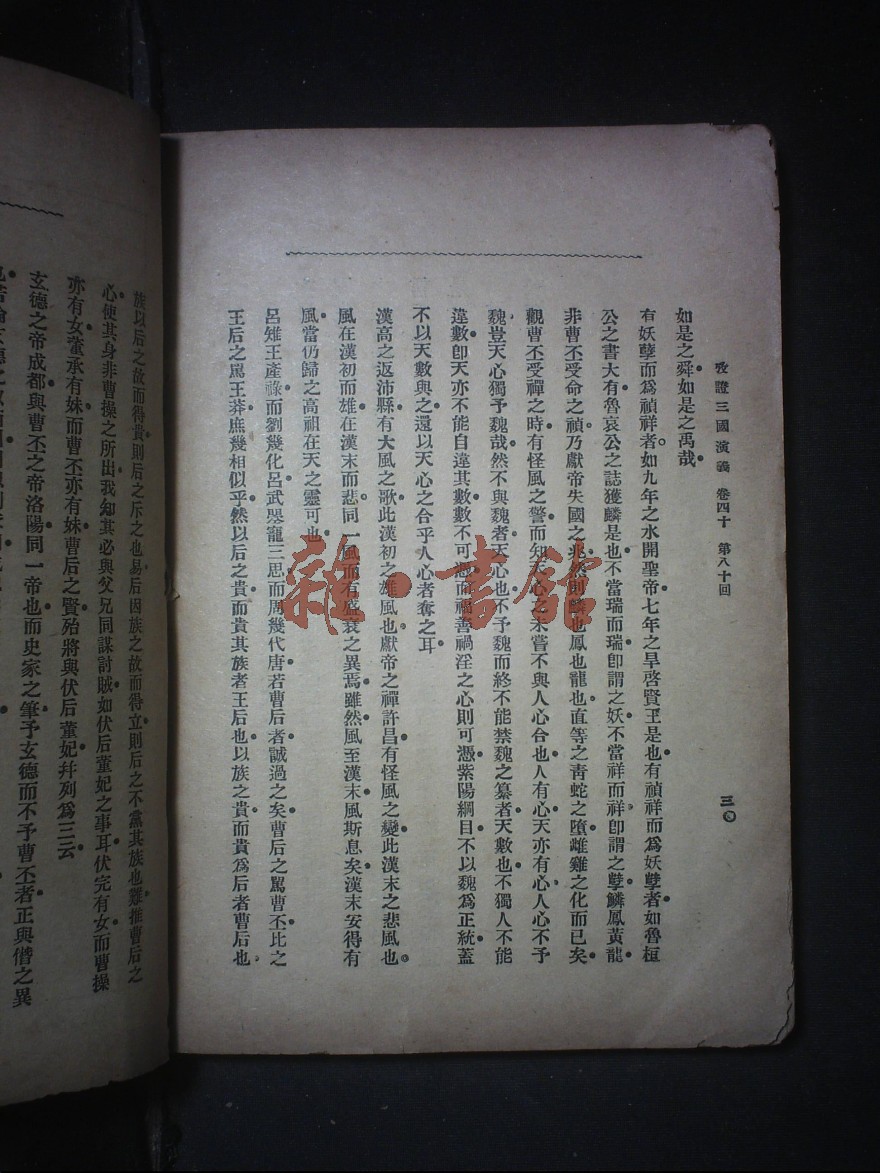 攷證三國演義 卷四十 第八十回 三〇
如是之舜如是之禹哉
有妖孽而爲禎祥者如九年之水開聖帝七年之旱啓賢王是也有禎祥而爲妖孽者如魯桓
公之書大有魯哀公之誌獲麟是也不當瑞而瑞卽謂之妖不當祥而祥卽謂之孽麟鳳黃龍
非曹丕受命之禎乃獻帝失國之兆然則麟也鳳也龍也直等之靑蛇之墮雌雞之化而已矣
觀曹丕受禪之時有怪風之警而知天心之未嘗不與人心合也人有心天亦有心人心不予
魏豈天心獨予魏哉然不與魏者天心也不予魏而終不能禁魏之簒者天數也不獨人不能
違數卽天亦不能自違其數數不可憑而福善禍淫之心則可憑紫陽綱目不以魏爲正統蓋
不以天數與之還以天心之合乎人心者奪之耳
漢高之返沛縣有大風之歌此漢初之雄風也獻帝之禪許昌有怪風之變此漢末之悲風也
風在漢初而雄在漢末而悲同一風而有盛衰之異焉雖然風至漢末風斯息矣漢末安得有
風當仍歸之高祖在天之靈可也
呂雉王產祿而劉幾化呂武曌寵三思而周幾代唐若曹后者誠過之矣曹后之駡曹丕比之
王后之駡王莽庶幾相似乎然以后之貴而貴其族者王后也以族之貴而貴爲后者曹后也
族以后之故而得貴則后之斥之也易后因族之故而得立則后之不黨其族也難推曹后之
心使其身非曹操之所出我知其必與父兄同謀討賊如伏后董妃之事耳伏完有女而曹操
亦有女董承有妹而曹丕亦有妹曹后之賢殆將與伏后董妃幷列爲三云
玄德之帝成都與曹丕之帝洛陽同一帝也而史家之筆予玄德而不予曹丕者正與僭之異
雜·書館